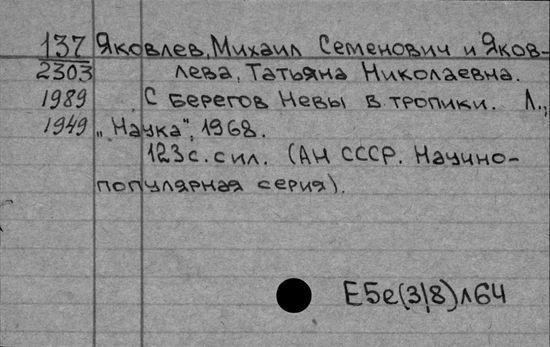 137 Яковлев, Михаил Семенович и Яков-
2303 лева, Татьяна Николаевна.
1989 С берегов Невы в тропики. Л.,
1949 „Наука", 1968.
123 с. с ил. (АН СССР. Научно-
популярная серия).
Е5е(3|8)л64